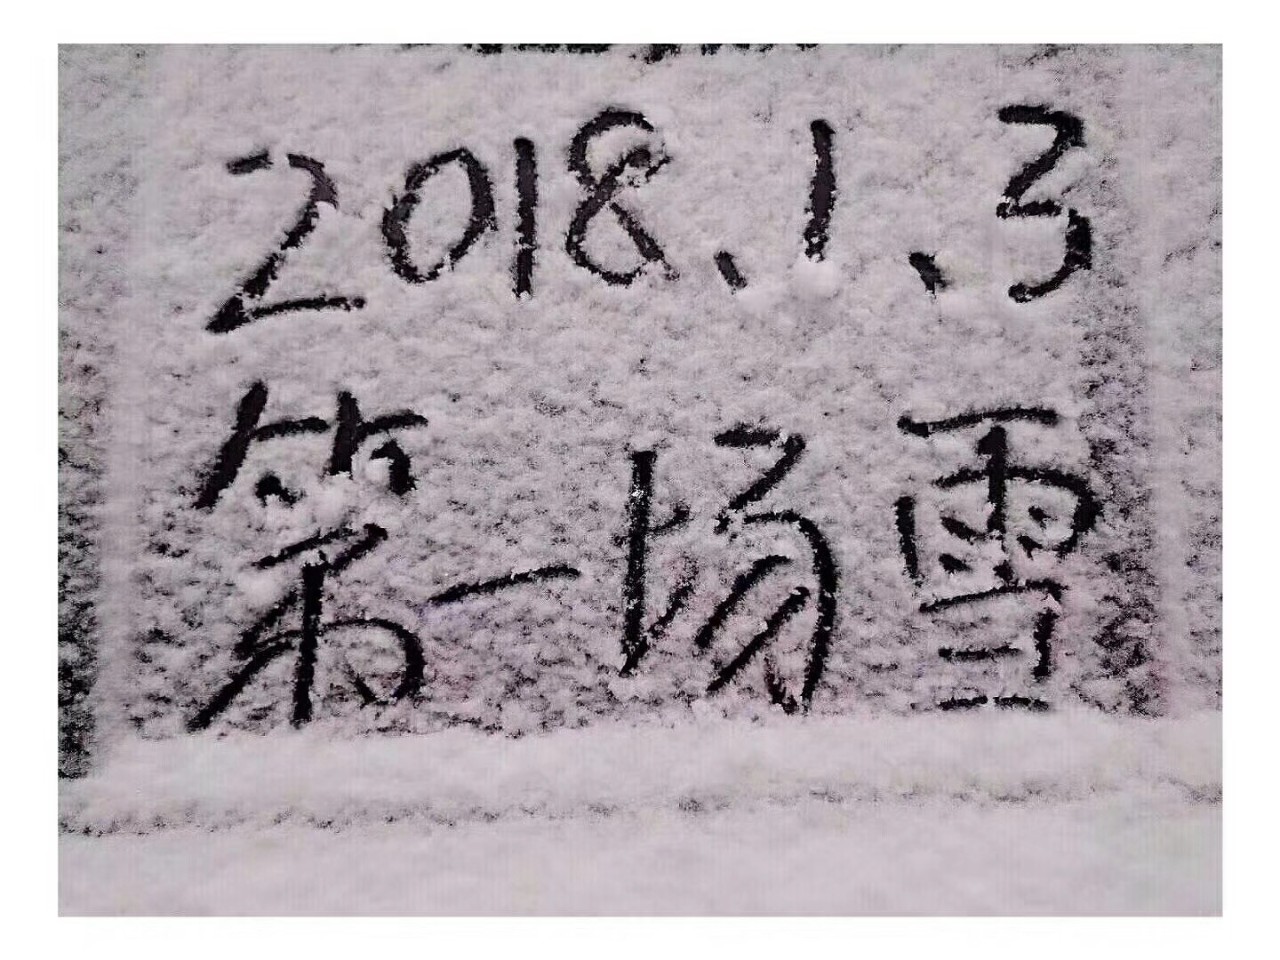 2018、1、3
第一场雪